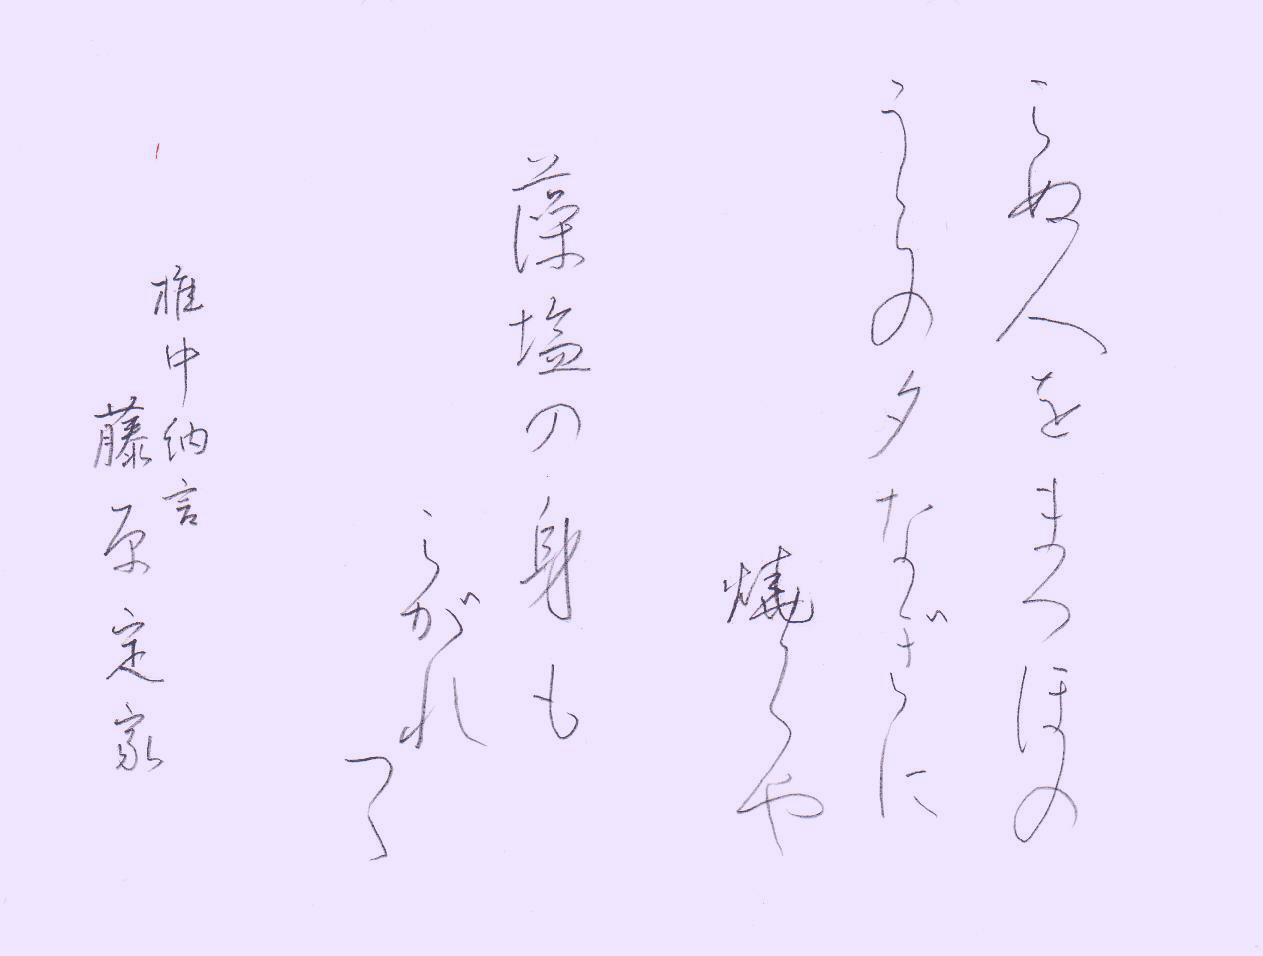 こぬ人をまつほの
うらの夕なぎに
焼くや
藻塩の身も
こがれ
つゝ
権中納言
藤原定家